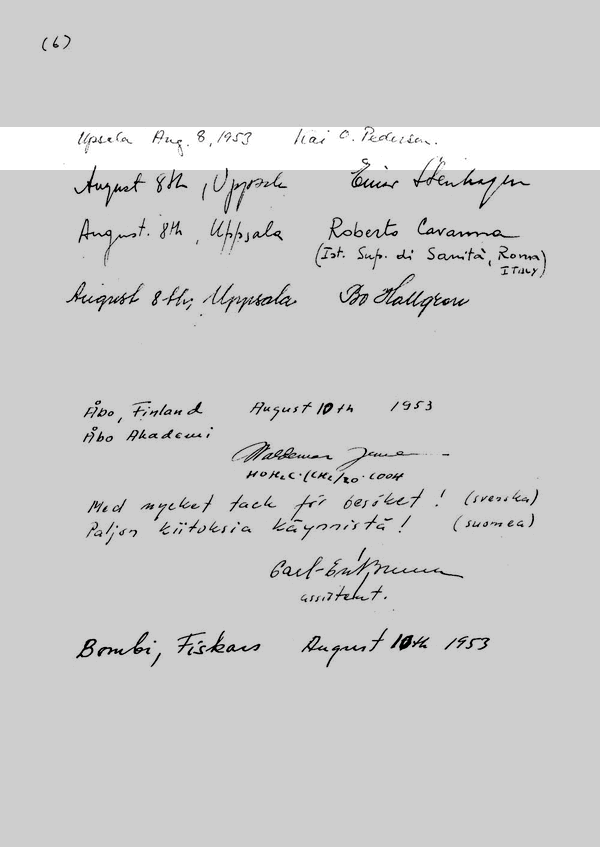 (6)
Uppsala Aug. 8, 1953 Kai O. Pedersen.
August 8th, Uppsala Einar Stenhagen
August. 8th, Uppsala Roberto Cavanna
(Ist. Sup. di Sanità, Roma)
ITALY
August 8-th, Uppsala Bo Hallgren
Åbo, Finland August 10th 1953
Åbo Akademi
Waldemar
HOH₂C·(CH₂)20·COOH
Med mycket tack för besöket! (svenska)
Paljon kiitoksia käynnistä! (suomea)
Carl-Erik
assistent.
Bombi, Fiskars August 10th 1953